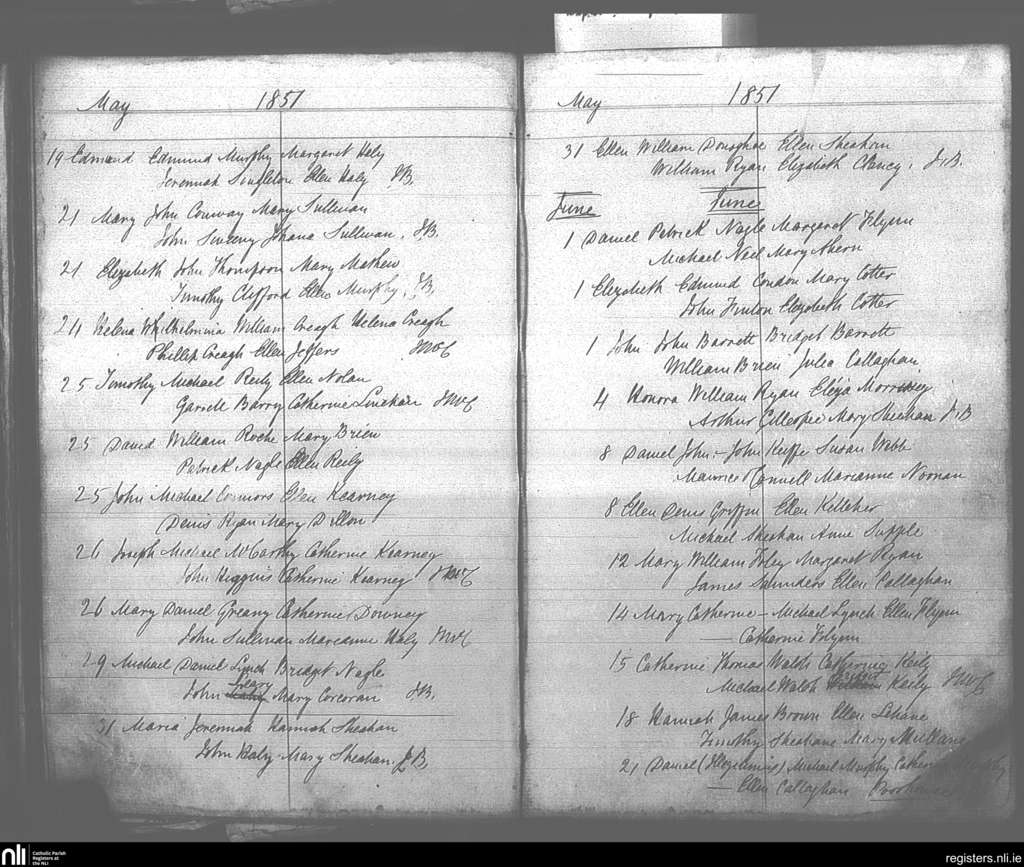 May 1851
19 Edmund Edmund Murphy Margaret Haly
Jeremiah Singleton Ellen Haly J.B.
21 Mary John Conway Mary Sullivan
John Sweeny Johana Sullivan. J.B.
21 Elizabeth John Thompson Mary Mathew
Timothy Clifford Ellen Murphy. J.B.
24 Helena Whilhelminia William Creagh Helena Creagh
Phillip Creagh Ellen Jeffers JMcC
25 Timothy Michael Reily Ellen Nolan
Garrett Barry Catherine Linehan JMcC
25 David William Roche Mary Brien
Patrick Nagle Ellen Reily
25 John Michael Connors Ellen Kearney
Denis Ryan Mary Dillon
26 Joseph Michael McCarthy Catherine Kearney
John Higgins Catherine Kearney JMcC
26 Mary Daniel Greany Catherine Downey
John Sullivan Mareanne Haly JMcC
29 Michael Daniel Lynch Bridget Nagle
John Leary Mary Corcoran J.B.
31 Maria Jeremiah Hannah Sheahan
John Haly Mary Sheahan. J.B.
May 1851
31 Ellen William Donoghoe Ellen Sheahan
William Ryan Elizabeth Clancy. J.B.
June June
1 Daniel Patrick Nagle Margaret Flynn
Michael Neil Mary Ahern
1 Elizabeth Edmund Condon Mary Cotter
John Finton Elizabeth Cotter
1 John John Barrett Bridget Barrett
William Brien Julia Callaghan.
4 Honora William Ryan Eliza Morrissey
Arthur Gillespie Mary Sheehan J.B
8 Daniel John - John Keiffe Susan Webb
Maurice Connell Marianne Noonan
8 Ellen Denis Griffin Ellen Kelleher
Michael Sheahan Anne Supple
12 Mary William Foley Margaret Ryan
James Saunders Ellen Callaghan
14 Mary Catherine - Michael Lynch Ellen Flynn
— Catherine Flynn
15 Catherine Thomas Walsh Catherine Keily
Michael Walsh Keily JMcC
18 Hannah James Brown Ellen Lehane
Timothy Sheahane Mary
21 Daniel (Illegitimis) Michael Murphy
— Ellen Callaghan Poorhouse
nli
Catholic Parish
Registers at
the NLI
registers.nli.ie